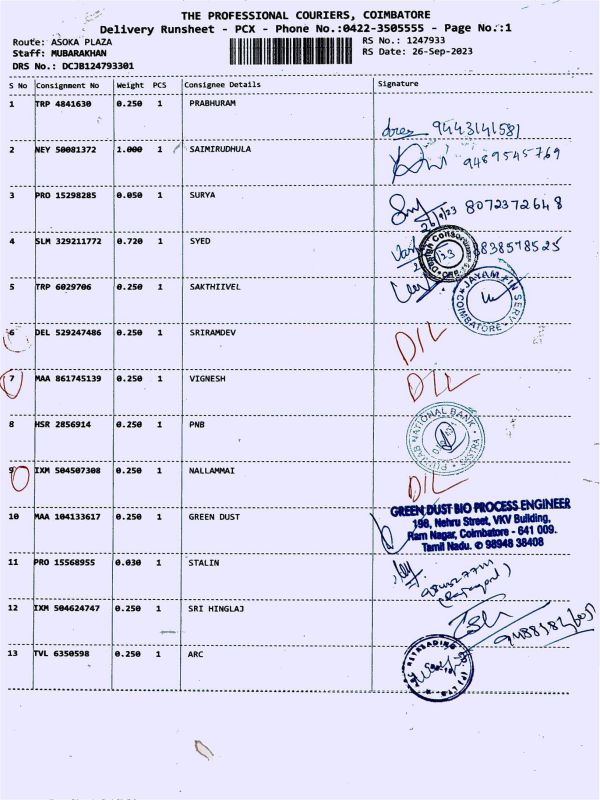 THE PROFESSIONAL COURIERS, COIMBATORE
Delivery Runsheet - PCX - Phone No.:0422-3505555 - Page No.:1
Route: ASOKA PLAZA
Staff: MUBARAKHAN
DRS No.: DCJB124793301
RS No.: 1247933
RS Date: 26-Sep-2023
S No Consignment No Weight PCS Consignee Details Signature
1 TRP 4841630 0.250 1 PRABHURAM
9443141581
2 NEY 50081372 1.000 1 SAIMIRUDHULA
9489545769
3 PRO 15298285 0.050 1 SURYA
26/9/23 8072372648
4 SLM 329211772 0.720 1 SYED
838578525
5 TRP 6029706 0.250 1 SAKTHIIVEL
COIMBATORE
6 DEL 529247486 0.250 1 SRIRAMDEV
DIL
7 MAA 861745139 0.250 1 VIGNESH
DIL
8 HSR 2856914 0.250 1 PNB
NATIONAL BANK
9 IXM 504507308 0.250 1 NALLAMMAI
DIL
10 MAA 104133617 0.250 1 GREEN DUST
GREEN DUST BIO PROCESS ENGINEER
198, Nehru Street, VKV Building,
Ram Nagar, Coimbatore - 641 009.
Tamil Nadu. ✆ 98948 38408
11 PRO 15568955 0.030 1 STALIN
12 IXM 504624747 0.250 1 SRI HINGLAJ
13 TVL 6350598 0.250 1 ARC